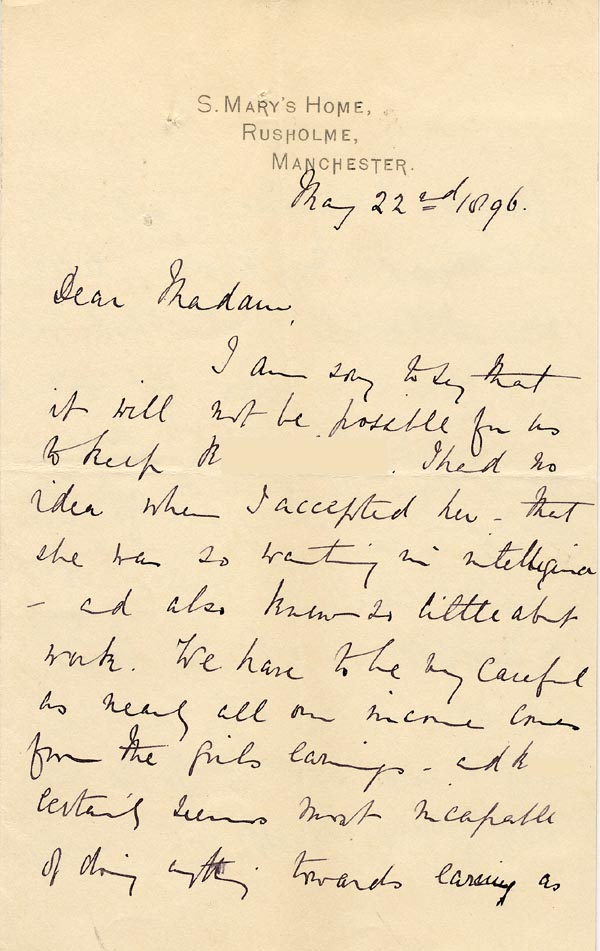 S. MARY'S HOME,
RUSHOLME,
MANCHESTER.
May 22nd 1896.
Dear Madam,
I am sorry to say that
it will not be possible for us
to keep K . I had no
idea when I accepted her - that
she was so wanting in intelligence
- and also knew so little about
work. We have to be very careful
as nearly all our income comes
from the girls earnings - and K
certainly seems most incapable
of doing anything towards earning as